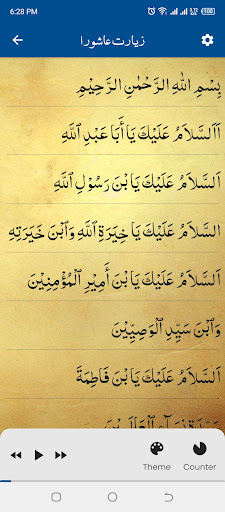 6:28 PM
58
زیارت عاشورا
بِسْمِ اللهِ الرَّحْمٰنِ الرَّحِيْمِ
اَلسَّلَامُ عَلَيْكَ يَا أَبَا عَبْدِ ٱللَّهِ
اَلسَّلَامُ عَلَيْكَ يَا بْنَ رَسُوْلِ ٱللَّهِ
اَلسَّلَامُ عَلَيْكَ يَا خِيَرَةِ ٱللَّهِ وَٱبْنَ خَيَرَتِهِ
اَلسَّلَامُ عَلَيْكَ يَا بْنَ أَمِيْرِ ٱلْمُؤْمِنِيْنَ
وَٱبْنَ سَيِّدِ ٱلْوَصِيِّيْنَ
اَلسَّلَامُ عَلَيْكَ يَا بْنَ فَاطِمَةَ
Theme Counter